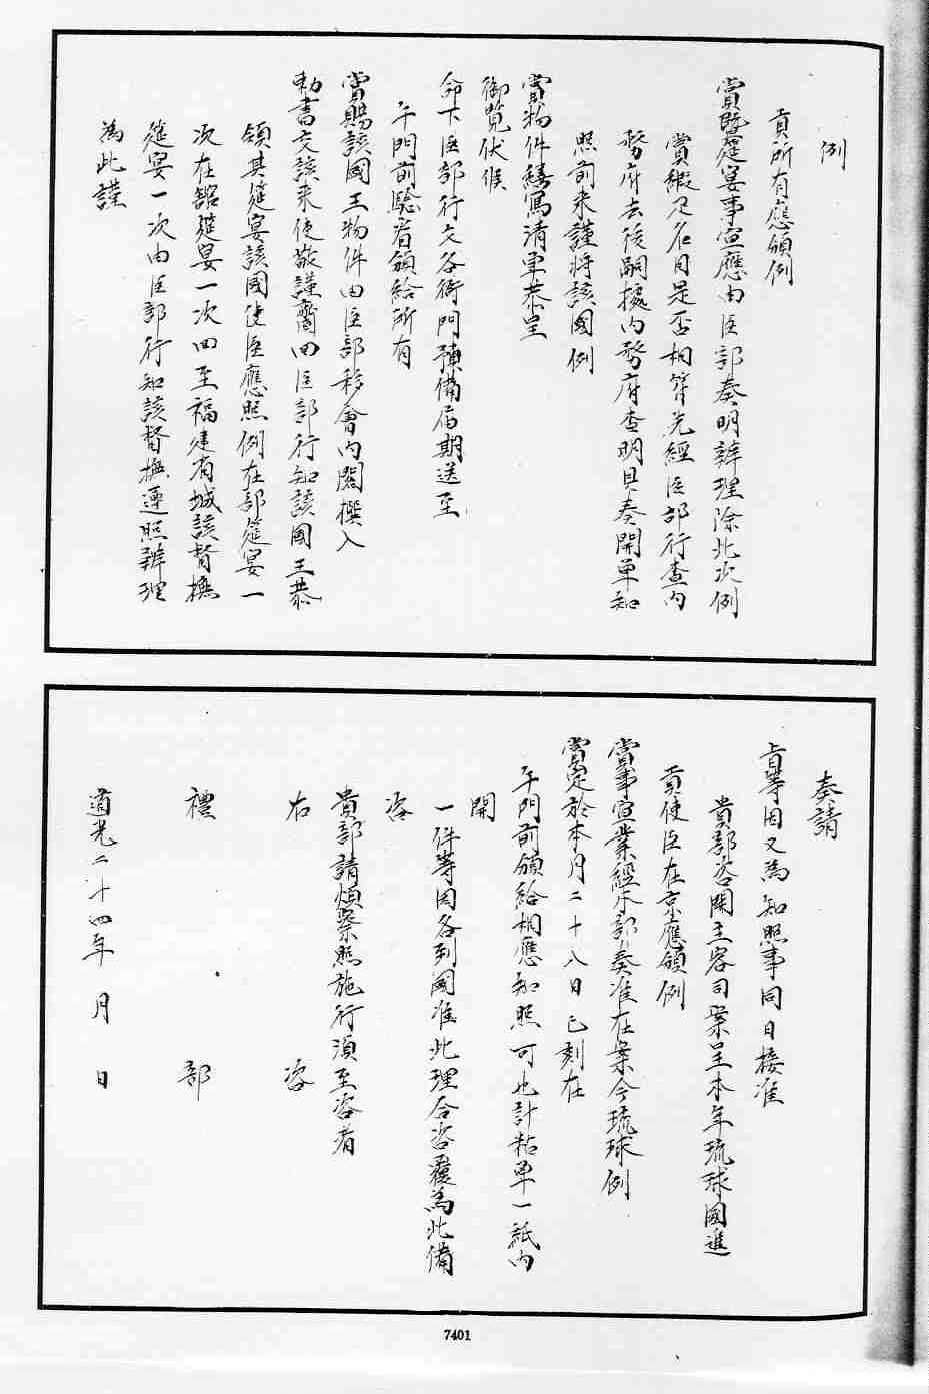 例
貢所有應頒例
賞曁筵宴事宜應由臣部奏明辦理除此次例
賞緞疋名目是否相符先經臣部行查內
務府去後嗣據內務府查明具奏開單知
照前来謹將該國例
賞物件繕寫清单恭呈
御覧伏候
命下臣部行文各衙門預備届期送至
午門前驗看頒給所有
賞賜該國王物件由臣部移會內閣撰入
勅書交該来使敬謹齎回臣部行知該國王恭
領其筵宴該國使臣應照例在部筵宴一
次在舘筵宴一次回至福建省城該督撫
筵宴一次由臣部行知該督撫遵照辦理
為此謹
奏請
旨等因又為知照事同日接准
貴部咨開主客司案呈本年琉球國進
貢使臣在京應領例
賞事宜業經本部奏准在案今琉球例
賞定於本月二十八日巳刻在
午門前頒給相應知照可也計粘單一紙內
開
一件等因各到國准此理合咨覆為此備
咨
貴部請煩察照施行湏至咨者
右 咨
禮 部
道光二十四年 月 日
7401